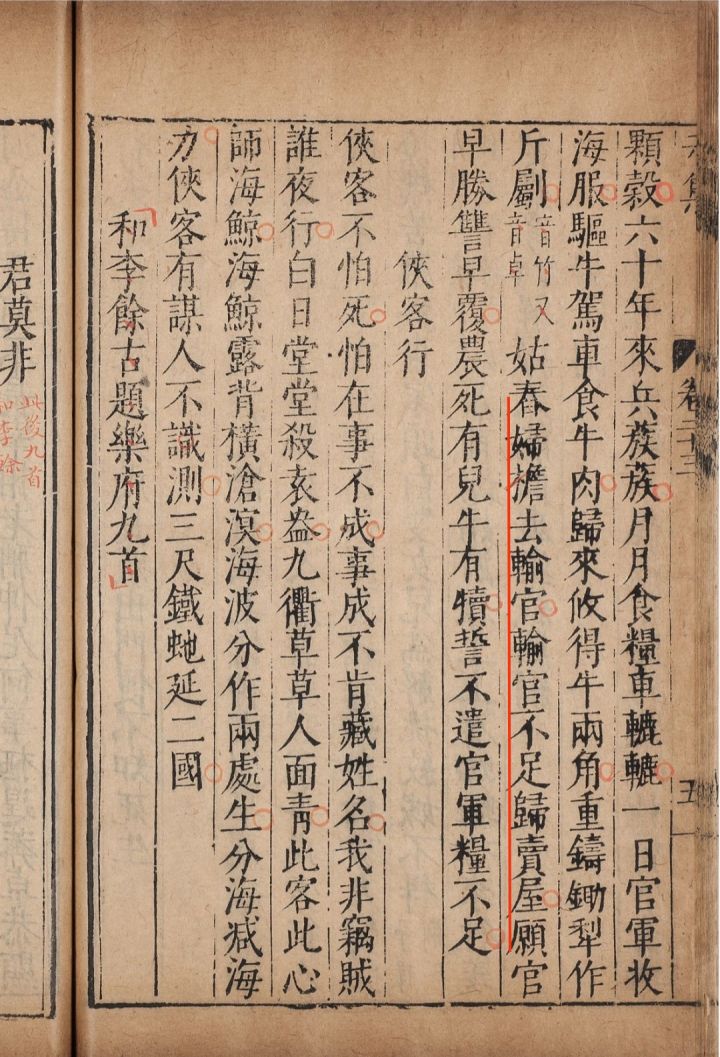 卷二十三
五
顆穀六十年來兵蔟蔟月月食糧車轆轆一日官軍收
海服驅牛駕車食牛肉歸來攸得牛兩角重鑄鋤犁作
斤劚音竹又音卓姑舂婦擔去輸官輸官不足歸賣屋願官
早勝讐早覆農死有兒牛有犢誓不遣官軍糧不足
俠客行
俠客不怕死怕在事不成事成不肯藏姓名我非竊賊
誰夜行白日堂堂殺袁盎九衢草草人面靑此客此心
師海鯨海鯨露背橫滄溟海波分作兩處生分海减海
力俠客有謀人不識測三尺鐵虵延二國
和李餘古題樂府九首
君莫非
此後九首
和李餘